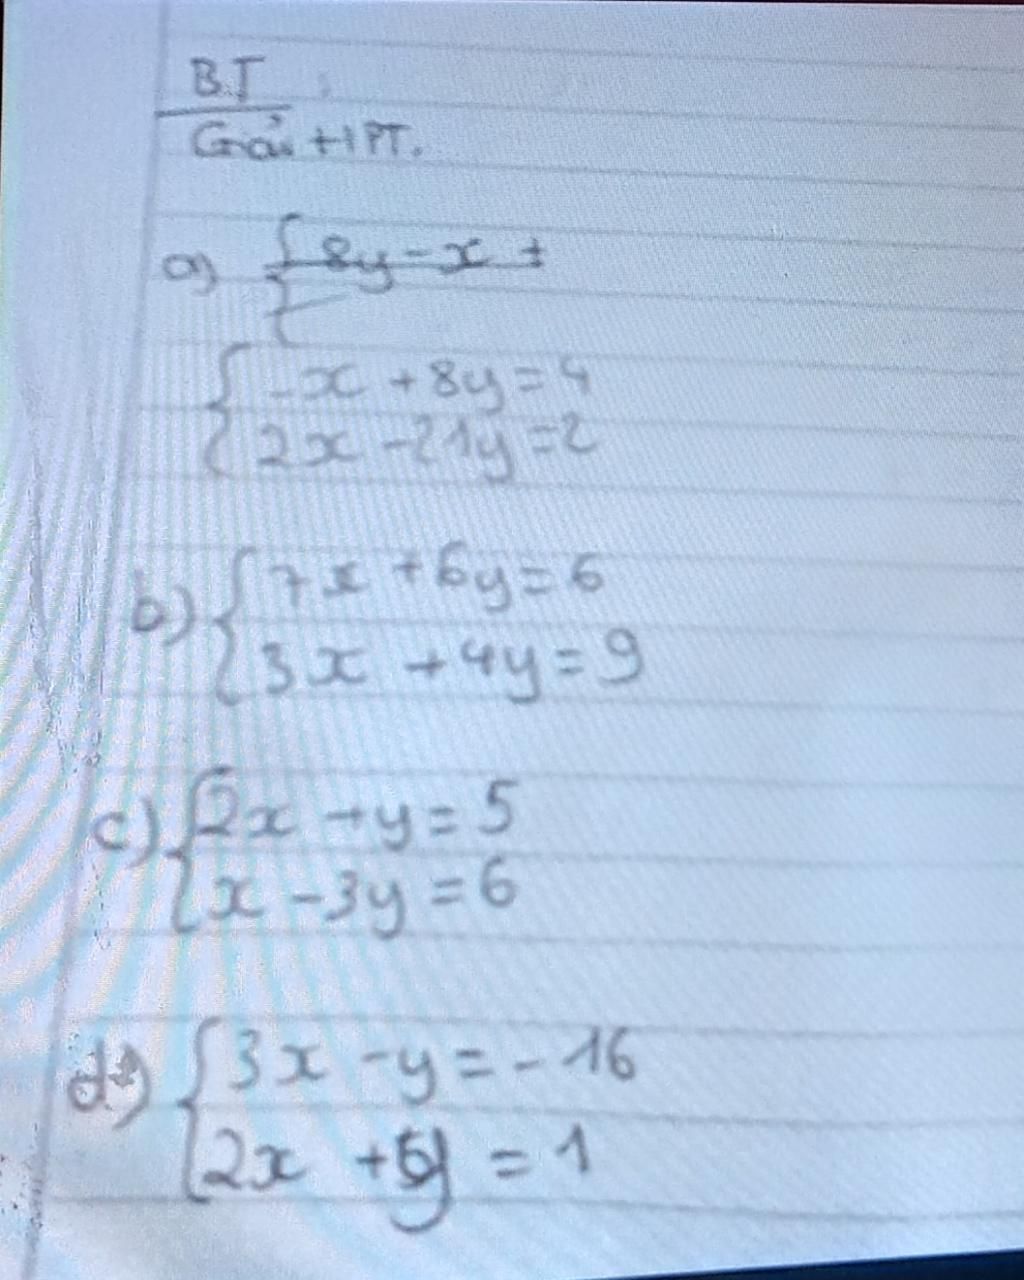 B.T
Giải HPT.
a) { 8y - x =
{ -x + 8y = 4
2x - 21y = 2
b) { 7x + 6y = 6
3x + 4y = 9
c) { 2x + y = 5
x - 3y = 6
d) { 3x - y = - 16
2x + 5y = 1